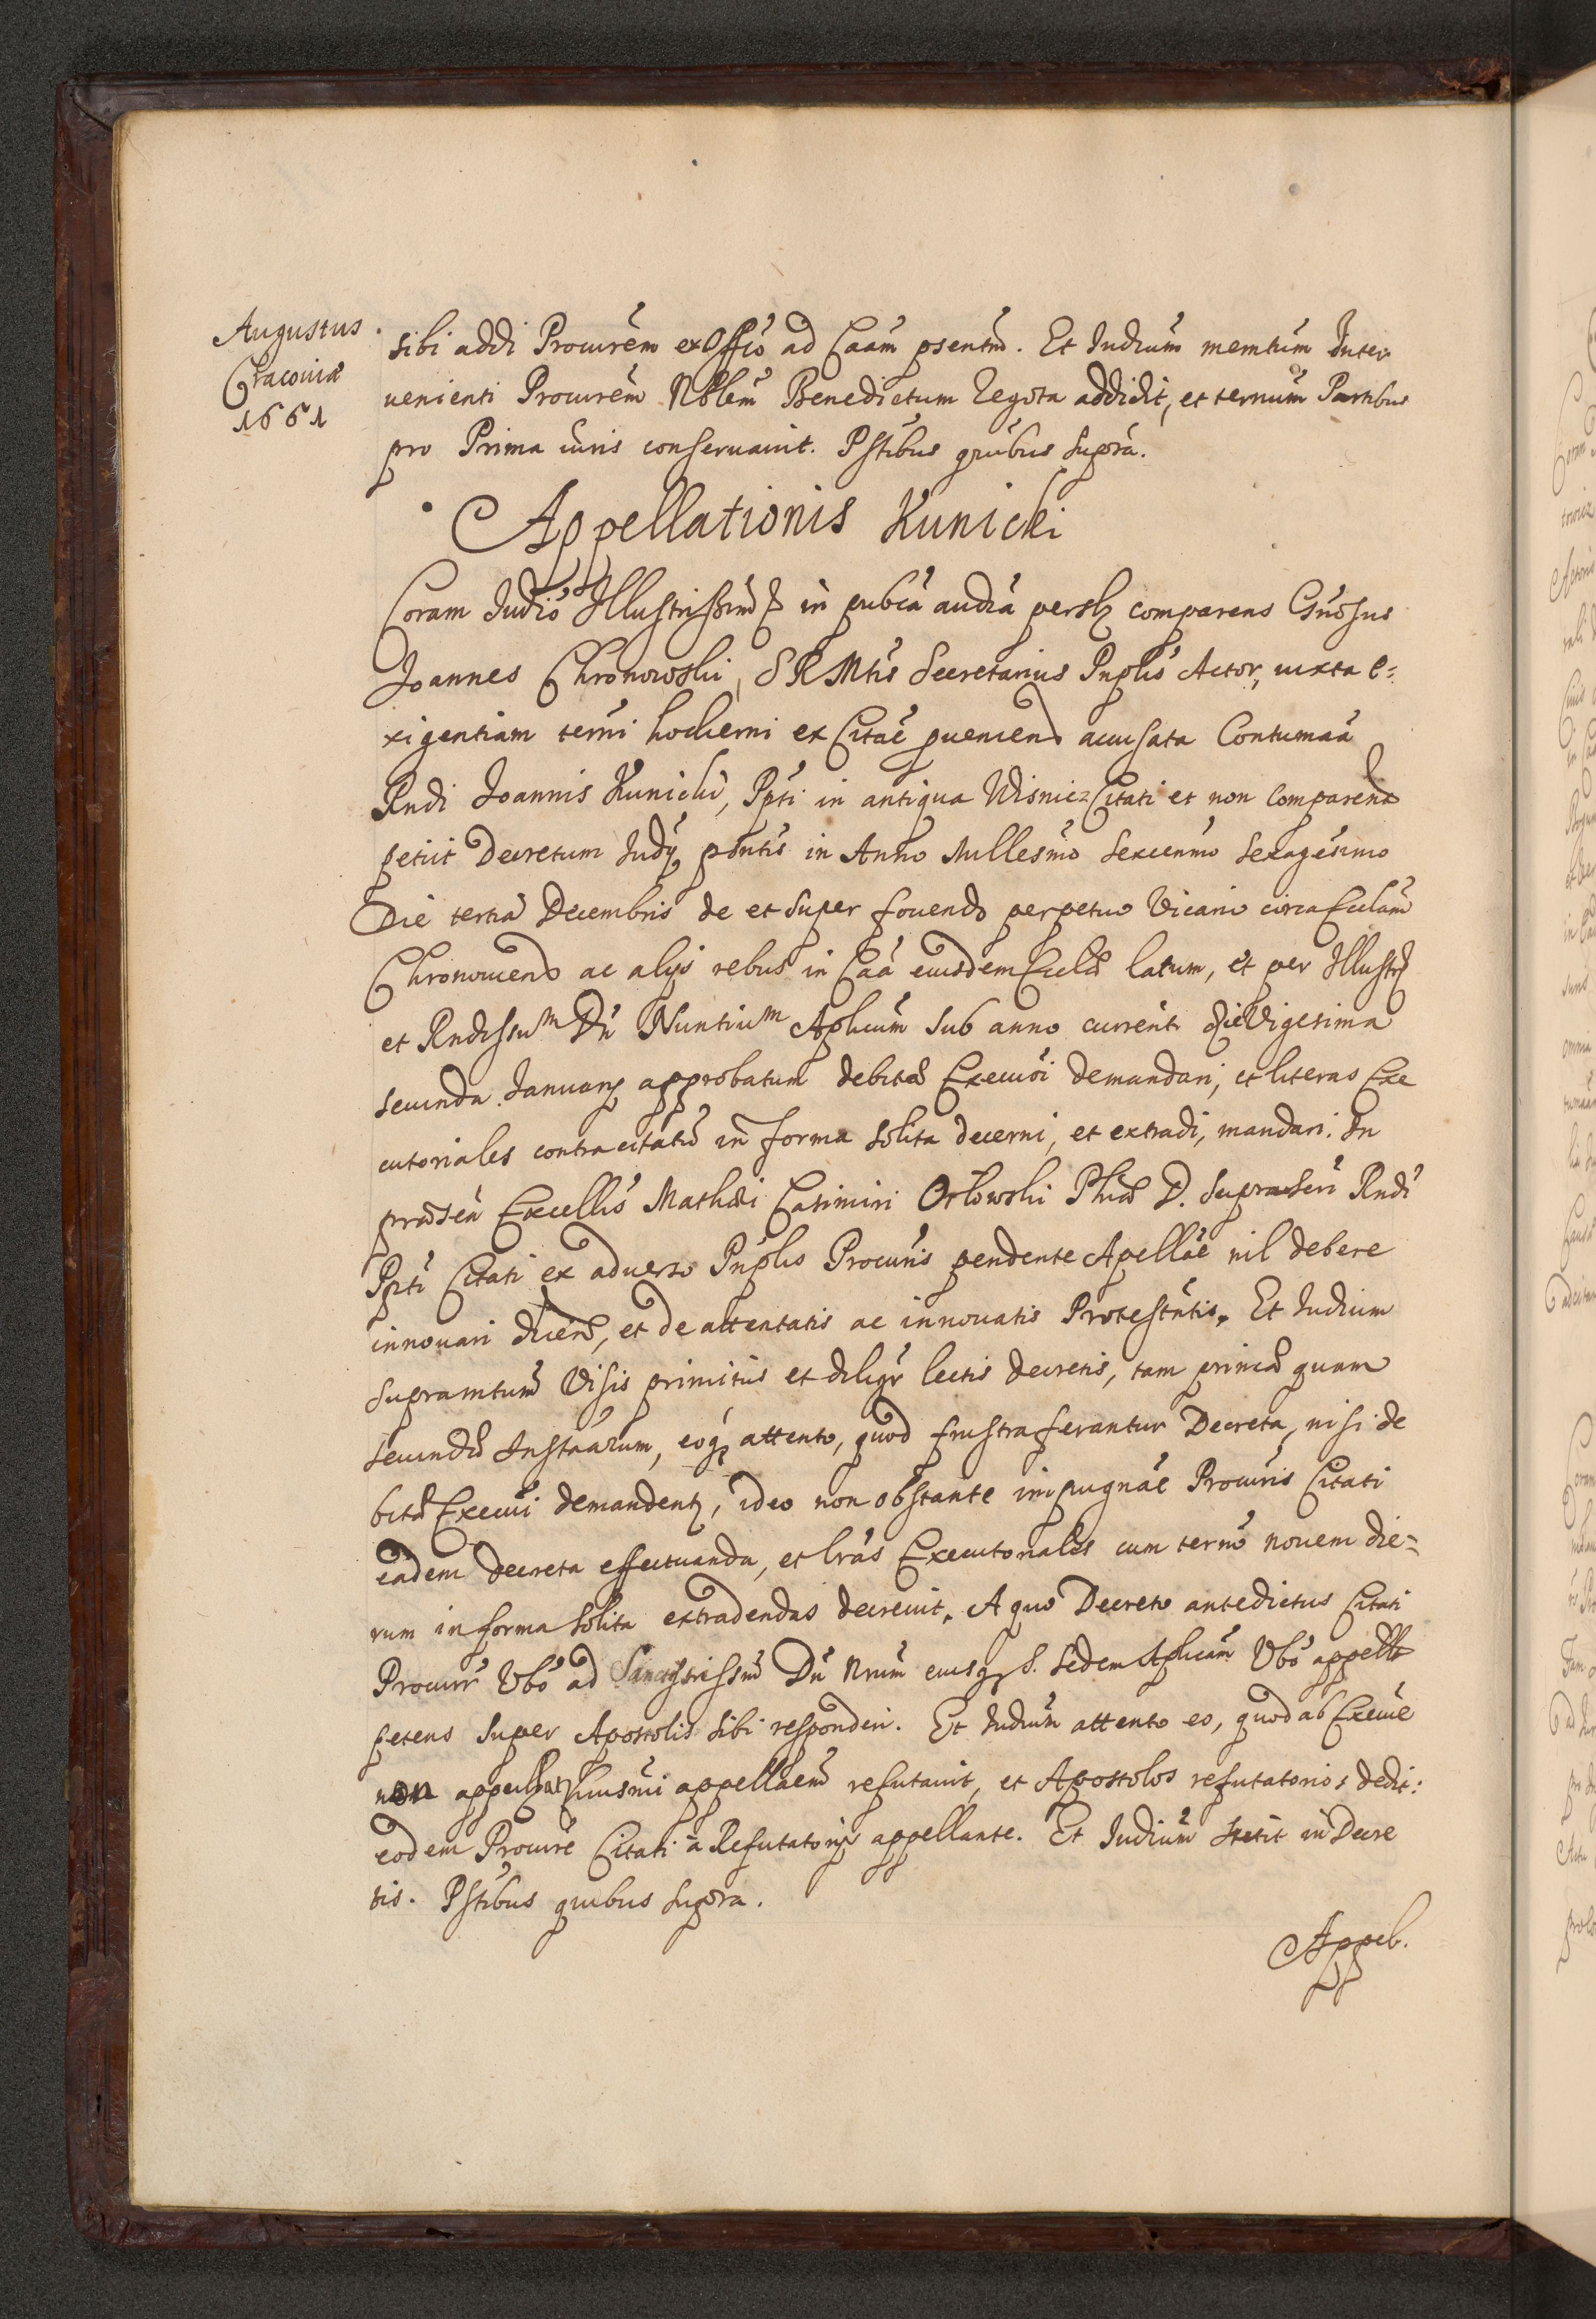 Augustus
Cracoviæ
1661
sibi addi Procurem ex Offio ad Caam psentem. Et Iudium memtum Inter
uenienti Procurem Nblem Benedictum Legota addidit, et ternum Partibus
pro Prima iuris conseruauit. Pstibus quibus supra.
Appellationis Kunicki
Coram Iudio Illustrissimo in pubca audia persr comparens Gnosus
Joannes Chronowski, S R Mtis Secretarius Pnplis Actor, iuxta e=
xigentiam terni hodierni ex Citae prouenien accusata Contumaa
Rndi Joannis Kunicki, Ppti in antiqua Wisnicz Citati et non comparens
petiit Decretum Iudy pntis in Anno Millesmo Sexcenmo Sexagesimo
Die tertia Decembris de et super fouendo perpetuo Vicario circa Ecclam
Chronouien ac alys rebus in Caa eiusdem Eccla latum, et per Illustr
et Rndissum Dn Nuntium Aplicum sub anno current die Vigesima
secunda January approbatum debitæ Execuoi demandari, et literas Exe
cutoriales contra citatu in forma solita decerni, et extradi, mandari. In
præsen Excellis Mathæi Casimiri Orłowski Phiæ D. suprascri Rndi
Ppti Citati ex aduerso Pnplis Procuris pendente Apellae nil debere
innouari dicen, et de attentatis ac innouatis Protestntis. Et Iudium
supramtum Visis primitus et diligr lectis decretis, tam primæ quam
secundæ Instaarum, eoq attento, quod frustra ferantur Decreta, nisi de
bitæ Execui demandent, ideo non obstante impugnae Procuris Citati
eadem decreta effectuanda, et lras Executoriales cum terno nouem die=
rum in forma solita extradendas decreuit. A quo Decreto antedictus Citati
Procurr Vbo ad Sanctissimu Dn Nrum eiusq S. Sedem Aplicam Vbo appellt
petens super Apostolis sibi responderi. Et Iudium attento eo, quod ab Execue
non appellatur huiusmi appellaem refutauit, et Apostolos refutatorios dedit:
eodem Procure Citati a Refutatorijs appellante. Et Iudium stetit in Decre
tis. Pstibus quibus supra.
Appel.